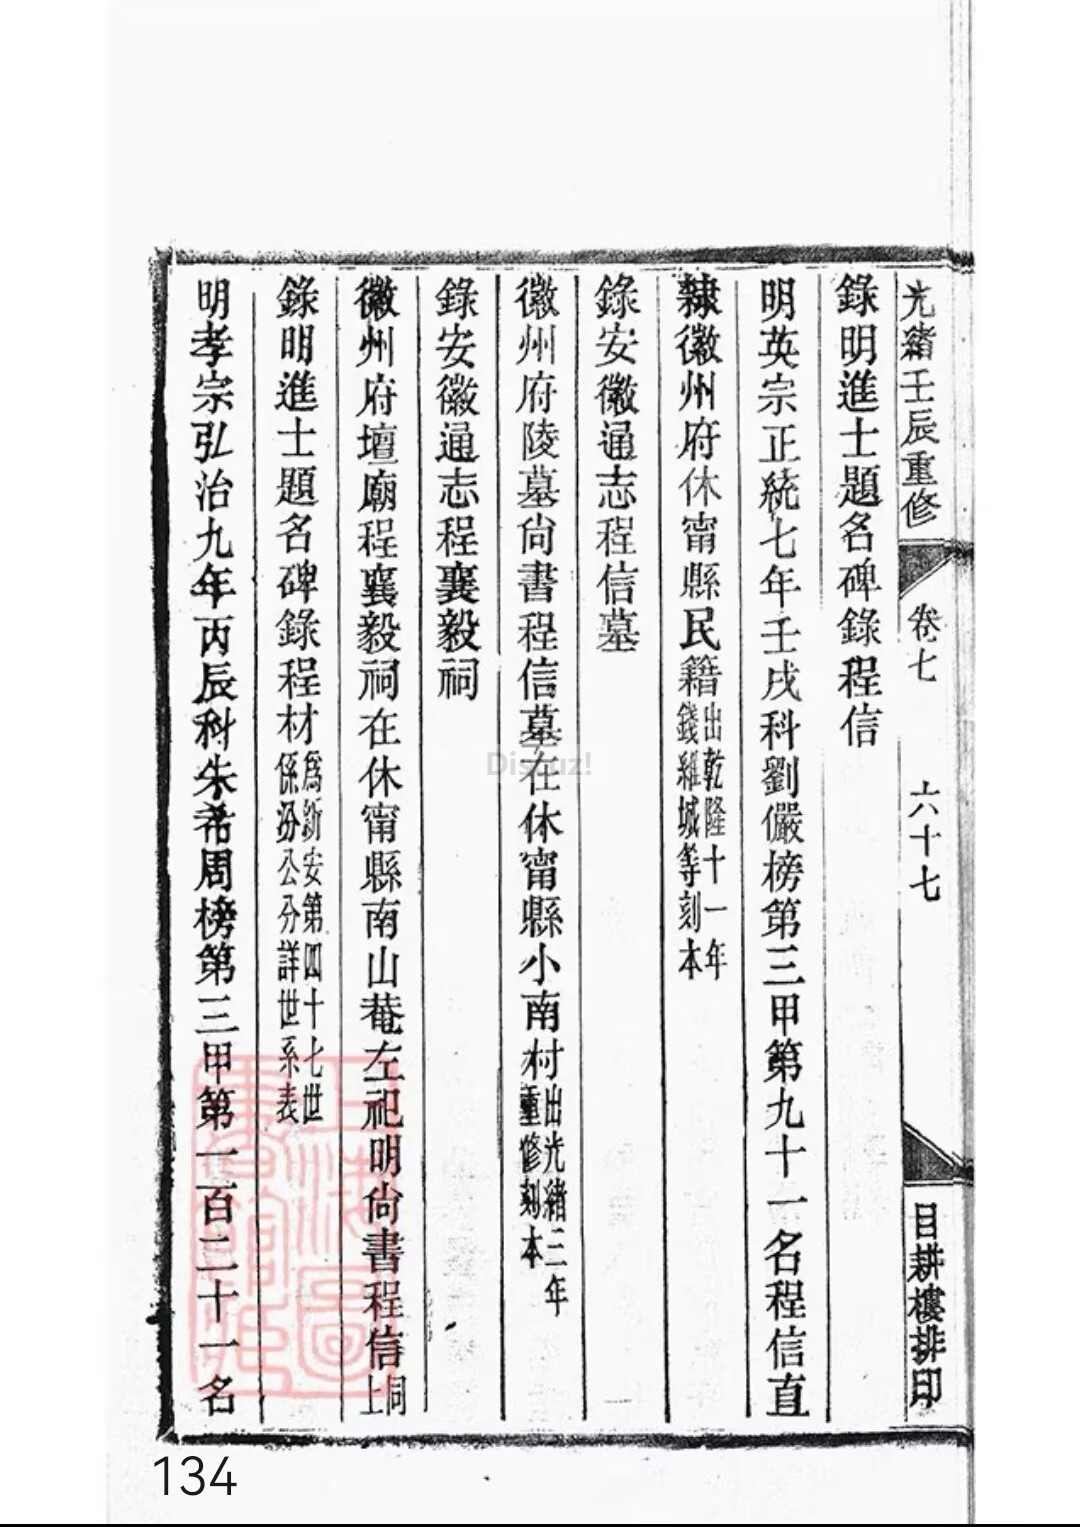 光緒壬辰重修
卷七
六十七
目耕樓排印
錄明進士題名碑錄程信
明英宗正統七年壬戌科劉儼榜第三甲第九十一名程信直
隸徽州府休甯縣民籍出乾隆十一年錢維城等刻本
錄安徽通志程信墓
徽州府陵墓尚書程信墓在休甯縣小南村出光緒三年重修刻本
錄安徽通志程襄毅祠
徽州府壇廟程襄毅祠在休甯縣南山菴左祀明尚書程信同上
錄明進士題名碑錄程材為新安第四十七世係汾公分詳世系表
明孝宗弘治九年丙辰科朱希周榜第三甲第一百二十一名
Discuz!
134